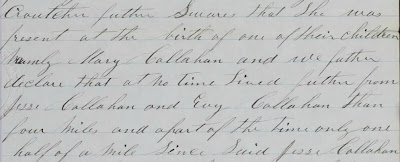 Croutcher futher Swares that She was
present at the birth of one of their children
Namely - Mary Callahan and we futher
declare that at no time lived futher from
Jesse Callahan and Evy Callahan than
four miles and apart of the time only one
half of a mile Since Said Jesse Callahan